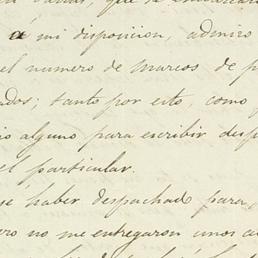 á mi disposicion, admiro
el numero de Marcos de
ados; tanto por esto, como
io alguno para escribir desp
el particular.
é haber despachado para,
ero no me entregaron unos